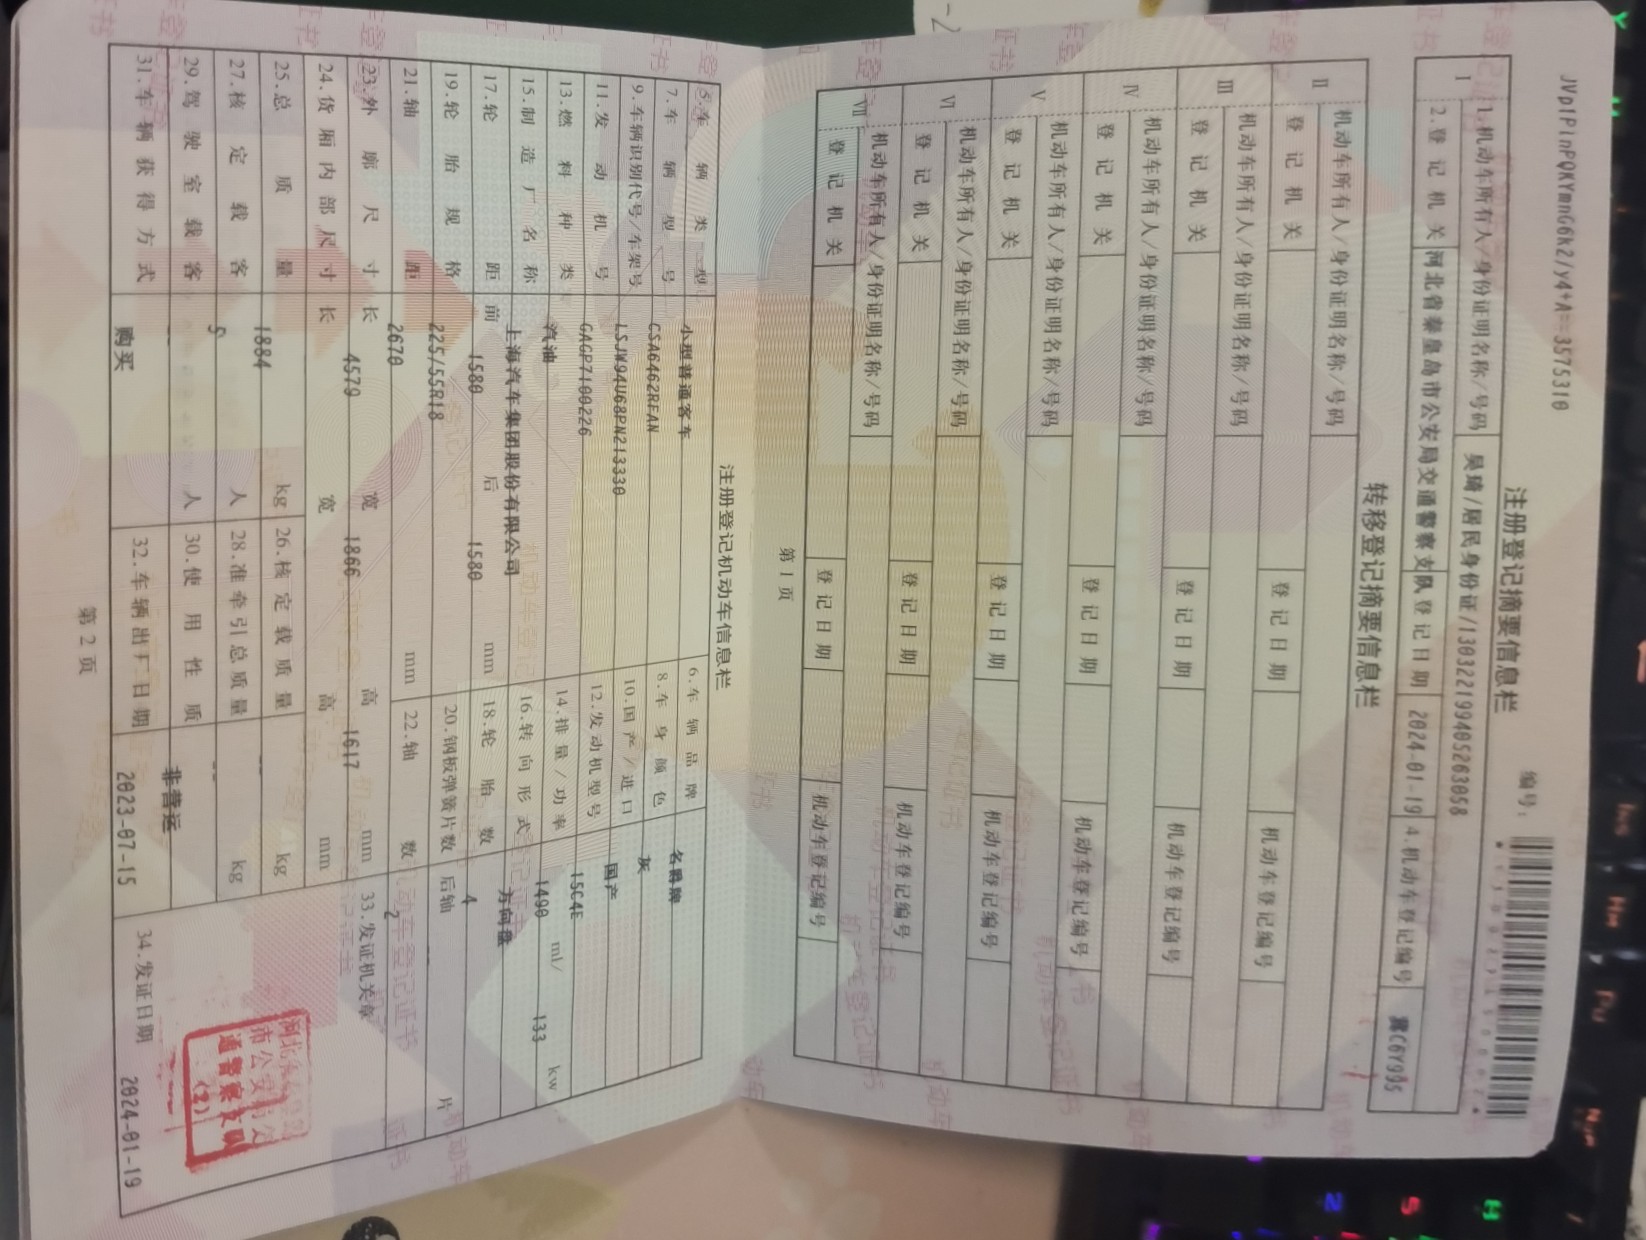 JVp1PinPQKYmnG6k2/y4+A==3575310
注册登记摘要信息栏
编号:
I
1.机动车所有人/身份证明名称/号码 吴琦/居民身份证/130322199405263058
2.登记机关 河北省秦皇岛市公安局交通警察支队 登记日期 2024-01-19 4.机动车登记编号 冀C6Y995
转移登记摘要信息栏
II 机动车所有人/身份证明名称/号码
登记机关 登记日期 机动车登记编号
III 机动车所有人/身份证明名称/号码
登记机关 登记日期 机动车登记编号
IV 机动车所有人/身份证明名称/号码
登记机关 登记日期 机动车登记编号
V 机动车所有人/身份证明名称/号码
登记机关 登记日期 机动车登记编号
VI 机动车所有人/身份证明名称/号码
登记机关 登记日期 机动车登记编号
VII 机动车所有人/身份证明名称/号码
登记机关 登记日期 机动车登记编号
第 1 页
注册登记机动车信息栏
5.车辆类型 小型普通客车 6.车辆品牌 名爵牌
7.车辆型号 CSA6462RFAN 8.车身颜色 灰
9.车辆识别代号/车架号 LSJW94U68PN213330 10.国产/进口 国产
11.发动机号 GAGP7100226 12.发动机型号 15C4E
13.燃料种类 汽油 14.排量/功率 1490 ml/ 133 kw
15.制造厂名称 上海汽车集团股份有限公司 16.转向形式 方向盘
17.轮距 前 1580 后 1580 mm 18.轮胎数 4
19.轮胎规格 225/55R18 20.钢板弹簧片数 后轴 -- 片
21.轴距 2670 mm 22.轴数 2
23.外廓尺寸 长 4579 宽 1866 高 1617 mm 33.发证机关章
24.货厢内部尺寸 长 宽 高 mm
25.总质量 1884 kg 26.核定载质量 -- kg
27.核定载客 5 人 28.准牵引总质量 -- kg
29.驾驶室载客 -- 人 30.使用性质 非营运
31.车辆获得方式 购买 32.车辆出厂日期 2023-07-15 34.发证日期 2024-01-19
市公安局交
通警察支队
(2)
第 2 页